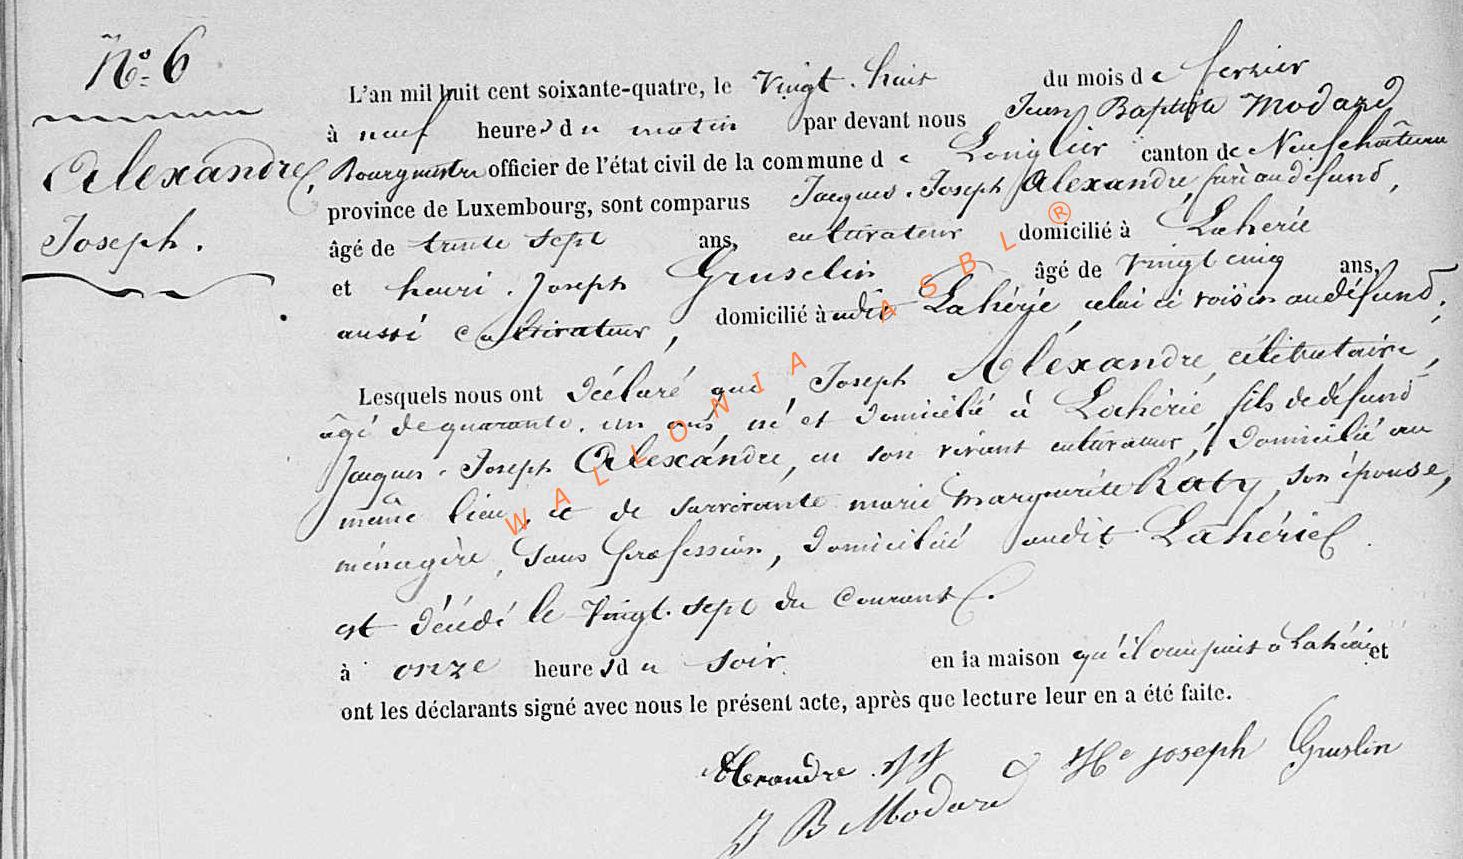 N° 6
Alexandre,
Joseph.
L'an mil huit cent soixante-quatre, le vingt-huit du mois de fevrier
à neuf heures du matin par devant nous Jean Baptiste Modard,
Bourgmestre officier de l'état civil de la commune de Longlier canton de Neufchâteau
province de Luxembourg, sont comparus Jacques-Joseph Alexandre frère au défunt,
âgé de trente sept ans, cultivateur domicilié à Lahérie
et henri-Joseph Gruselin âgé de vingt cinq ans,
aussi cultivateur, domicilié à udit Lahérie, celui ci voisin au défunt,
Lesquels nous ont déclaré que Joseph Alexandre, célibataire,
âgé de quarante-un ans né et domicilié à Lahérie, fils de défunt
Jacques-Joseph Alexandre, en son vivant cultivateur, domicilié au
même lieu, et de survivante marie Marguerite Raty, son épouse,
ménagère, sans profession, domiciliée audit Lahérie
est décédé le vingt-sept du courant.
à onze heures du soir en la maison qu'il occupait à Lahérie et
ont les déclarants signé avec nous le présent acte, après que lecture leur en a été faite.
Alexandre JJ He joseph Gruslin
J B Modard
WALLONIA ASBL ®